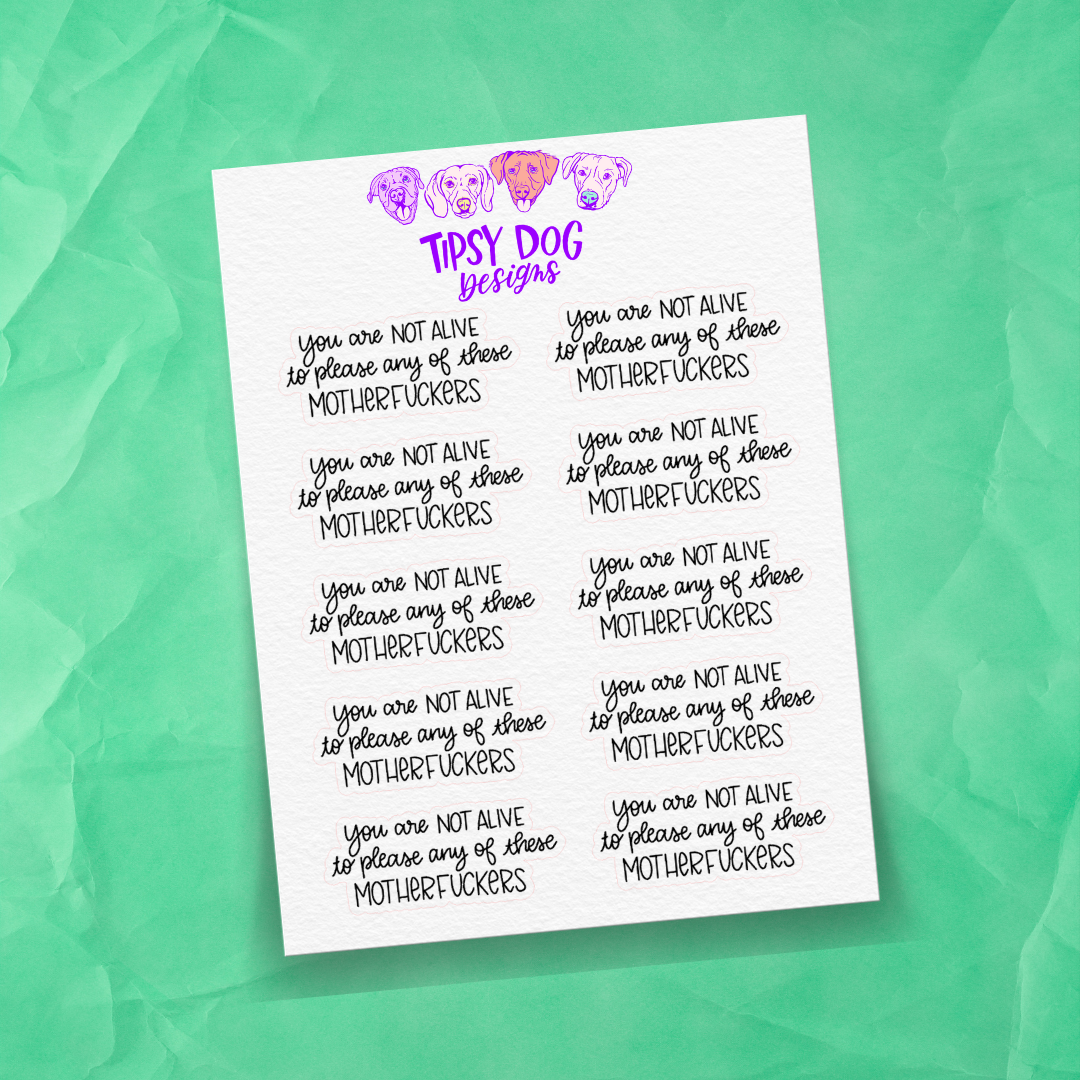 TIPSY DOG
Designs
you are NOT ALIVE
to please any of these
MOTHERFUCKERS
you are NOT ALIVE
to please any of these
MOTHERFUCKERS
you are NOT ALIVE
to please any of these
MOTHERFUCKERS
you are NOT ALIVE
to please any of these
MOTHERFUCKERS
you are NOT ALIVE
to please any of these
MOTHERFUCKERS
you are NOT ALIVE
to please any of these
MOTHERFUCKERS
you are NOT ALIVE
to please any of these
MOTHERFUCKERS
you are NOT ALIVE
to please any of these
MOTHERFUCKERS
you are NOT ALIVE
to please any of these
MOTHERFUCKERS
you are NOT ALIVE
to please any of these
MOTHERFUCKERS